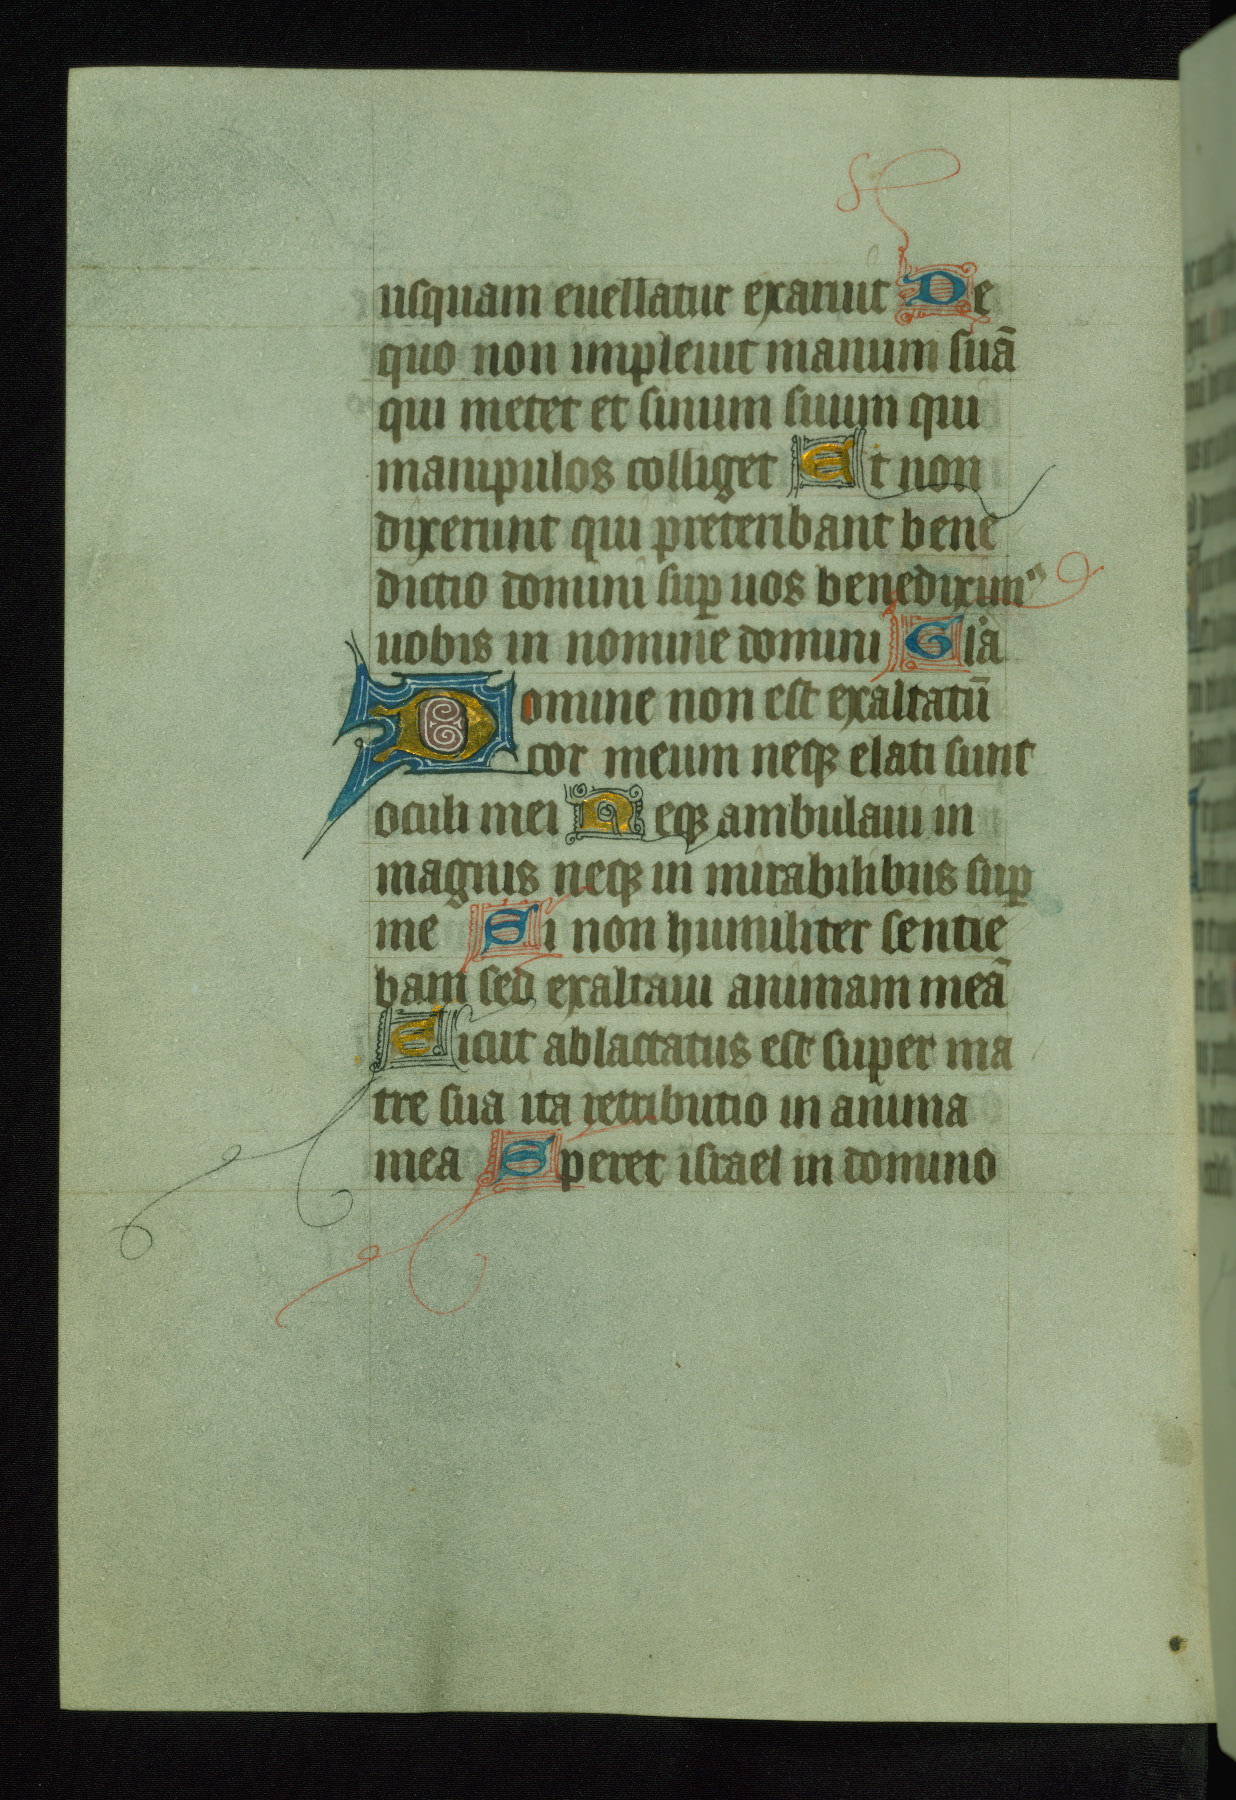 usquam euellatur exaruit De
quo non impleuit manum suā
qui metet et sinum suum qui
manipulos colliget Et non
dixerunt qui preteribant bene
dictio domini suꝑ uos benedixim⁹
uobis in nomine domini Gl'a
Domine non est exaltatū
cor meum neqꝫ elati sunt
oculi mei Neqꝫ ambulaui in
magnis neqꝫ in mirabilibus suꝑ
me Si non humiliter sentie
bam sed exaltaui animam meā
Sicut ablactatus est super ma
tre sua ita retributio in anima
mea Speret israel in domino